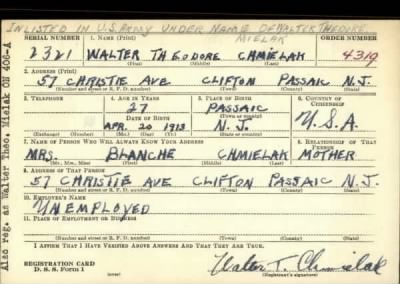 INLISTED IN U.S. ARMY UNDER NAME OF WALTER THEODORE
MIELAK
SERIAL NUMBER 1. NAME (Print) ORDER NUMBER
2321 WALTER THEODORE CHMIELAK 4319
(First) (Middle) (Last)
2. ADDRESS (Print)
57 CHRISTIE AVE CLIFTON PASSAIC N.J.
(Number and street or R. F. D. number) (Town) (County) (State)
3. TELEPHONE 4. AGE IN YEARS 5. PLACE OF BIRTH 6. COUNTRY OF CITIZENSHIP
27 PASSAIC
DATE OF BIRTH (Town or county)
APR. 20 1913 N.J. U.S.A
(Exchange) (Number) (Mo.) (Day) (Yr.) (State or country)
7. NAME OF PERSON WHO WILL ALWAYS KNOW YOUR ADDRESS 8. RELATIONSHIP OF THAT PERSON
MRS. BLANCHE CHMIELAK MOTHER
(Mr., Mrs., Miss) (First) (Middle) (Last)
9. ADDRESS OF THAT PERSON
57 CHRISTIE AVE CLIFTON PASSAIC N.J.
(Number and street or R. F. D. number) (Town) (County) (State)
10. EMPLOYER'S NAME
UNEMPLOYED
11. PLACE OF EMPLOYMENT OR BUSINESS
(Number and street or R. F. D. number) (Town) (County) (State)
I AFFIRM THAT I HAVE VERIFIED ABOVE ANSWERS AND THAT THEY ARE TRUE.
REGISTRATION CARD
D. S. S. Form 1
Walter T. Chmielak
(Registrant's signature)
Also reg. as Walter Theo. Mielak ON 406-A